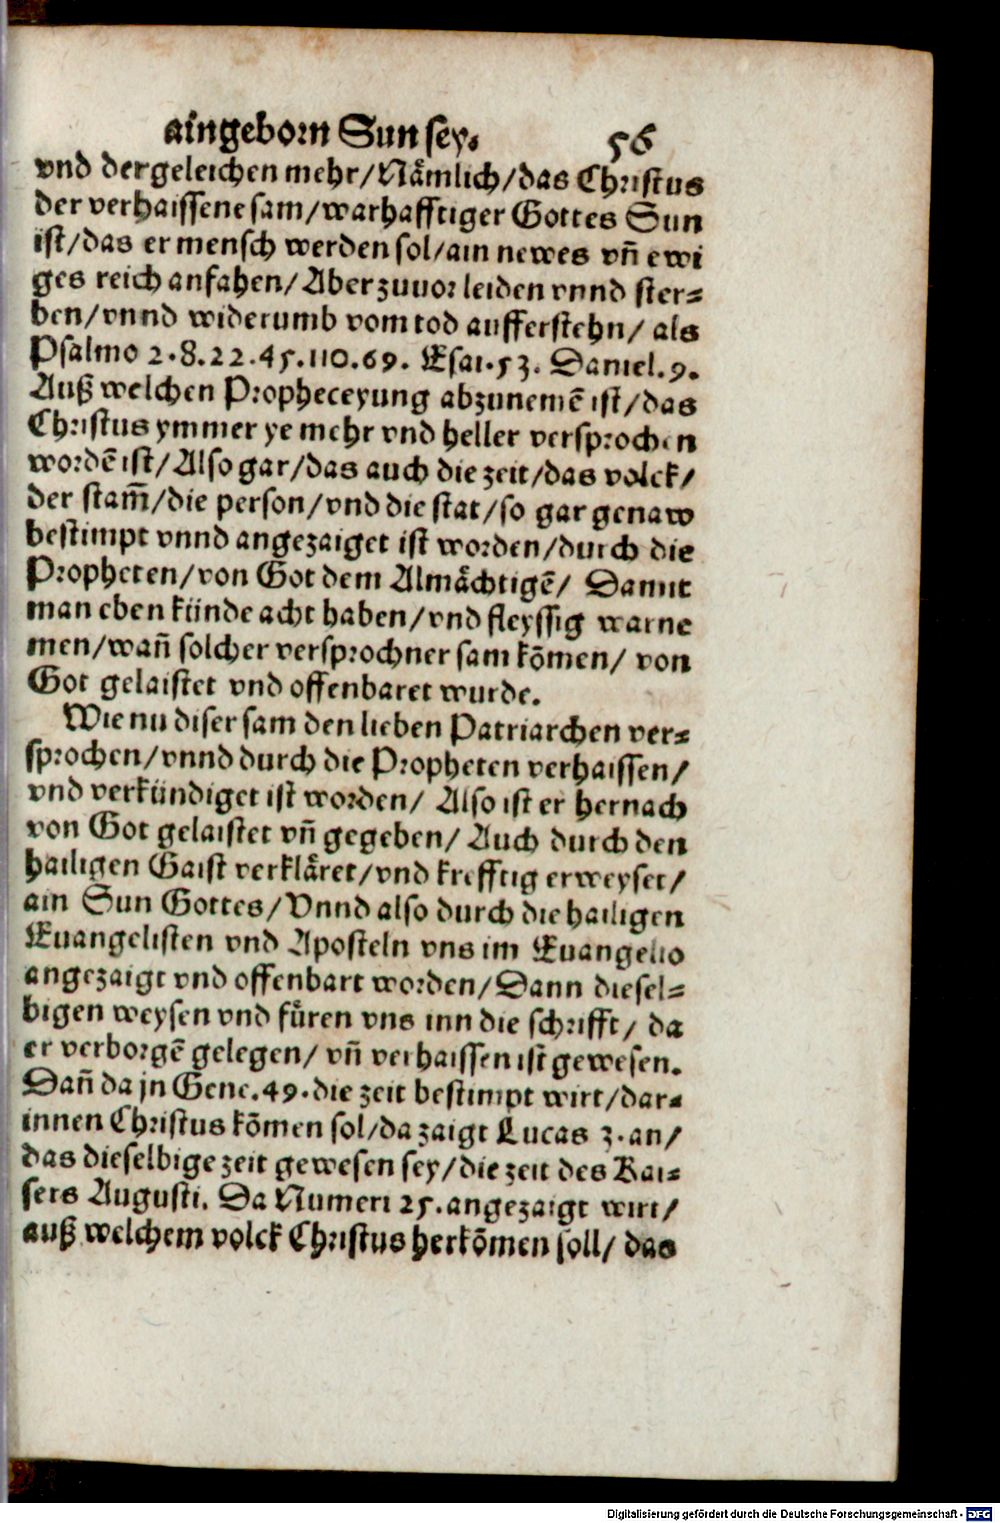 aingeborn Sun sey. 56
vnd dergeleichen mehr/Nämlich/das Christus
der verhaissene sam/warhafftiger Gottes Sun
ist/das er mensch werden sol/ain newes vñ ewi
ges reich anfahen/Aber zuuor leiden vnnd ster⸗
ben/vnnd widerumb vom tod aufferstehn/ als
Psalmo 2.8.22.45.110.69. Esai.53. Daniel.9.
Auß welchen Propheceyung abzunemē ist/das
Christus ymmer ye mehr vnd heller versprochen
wordē ist/Also gar/das auch die zeit/das volck/
der stam̃/die person/vnd die stat/so gar genaw
bestimpt vnnd angezaiget ist worden/durch die
Propheten/von Got dem Almächtigē/ Damit
man eben künde acht haben/vnd fleyssig warne
men/wañ solcher versprochner sam kōmen/ von
Got gelaistet vnd offenbaret wurde.
Wie nu diser sam den lieben Patriarchen ver⸗
sprochen/vnnd durch die Propheten verhaissen/
vnd verkündiget ist worden/ Also ist er hernach
von Got gelaistet vñ gegeben/ Auch durch den
hailigen Gaist verkläret/vnd krefftig erweyset/
ain Sun Gottes/Vnnd also durch die hailigen
Euangelisten vnd Aposteln vns im Euangelio
angezaigt vnd offenbart worden/Dann diesel⸗
bigen weysen vnd füren vns inn die schrifft/ da
er verborgē gelegen/ vñ verhaissen ist gewesen.
Dañ da jn Gene.49.die zeit bestimpt wirt/dar⸗
innen Christus kōmen sol/da zaigt Lucas 3.an/
das dieselbige zeit gewesen sey/die zeit des Kai⸗
sers Augusti. Da Numeri 25.angezaigt wirt/
auß welchem volck Christus herkōmen soll/ das
Digitalisierung gefördert durch die Deutsche Forschungsgemeinschaft - DFG